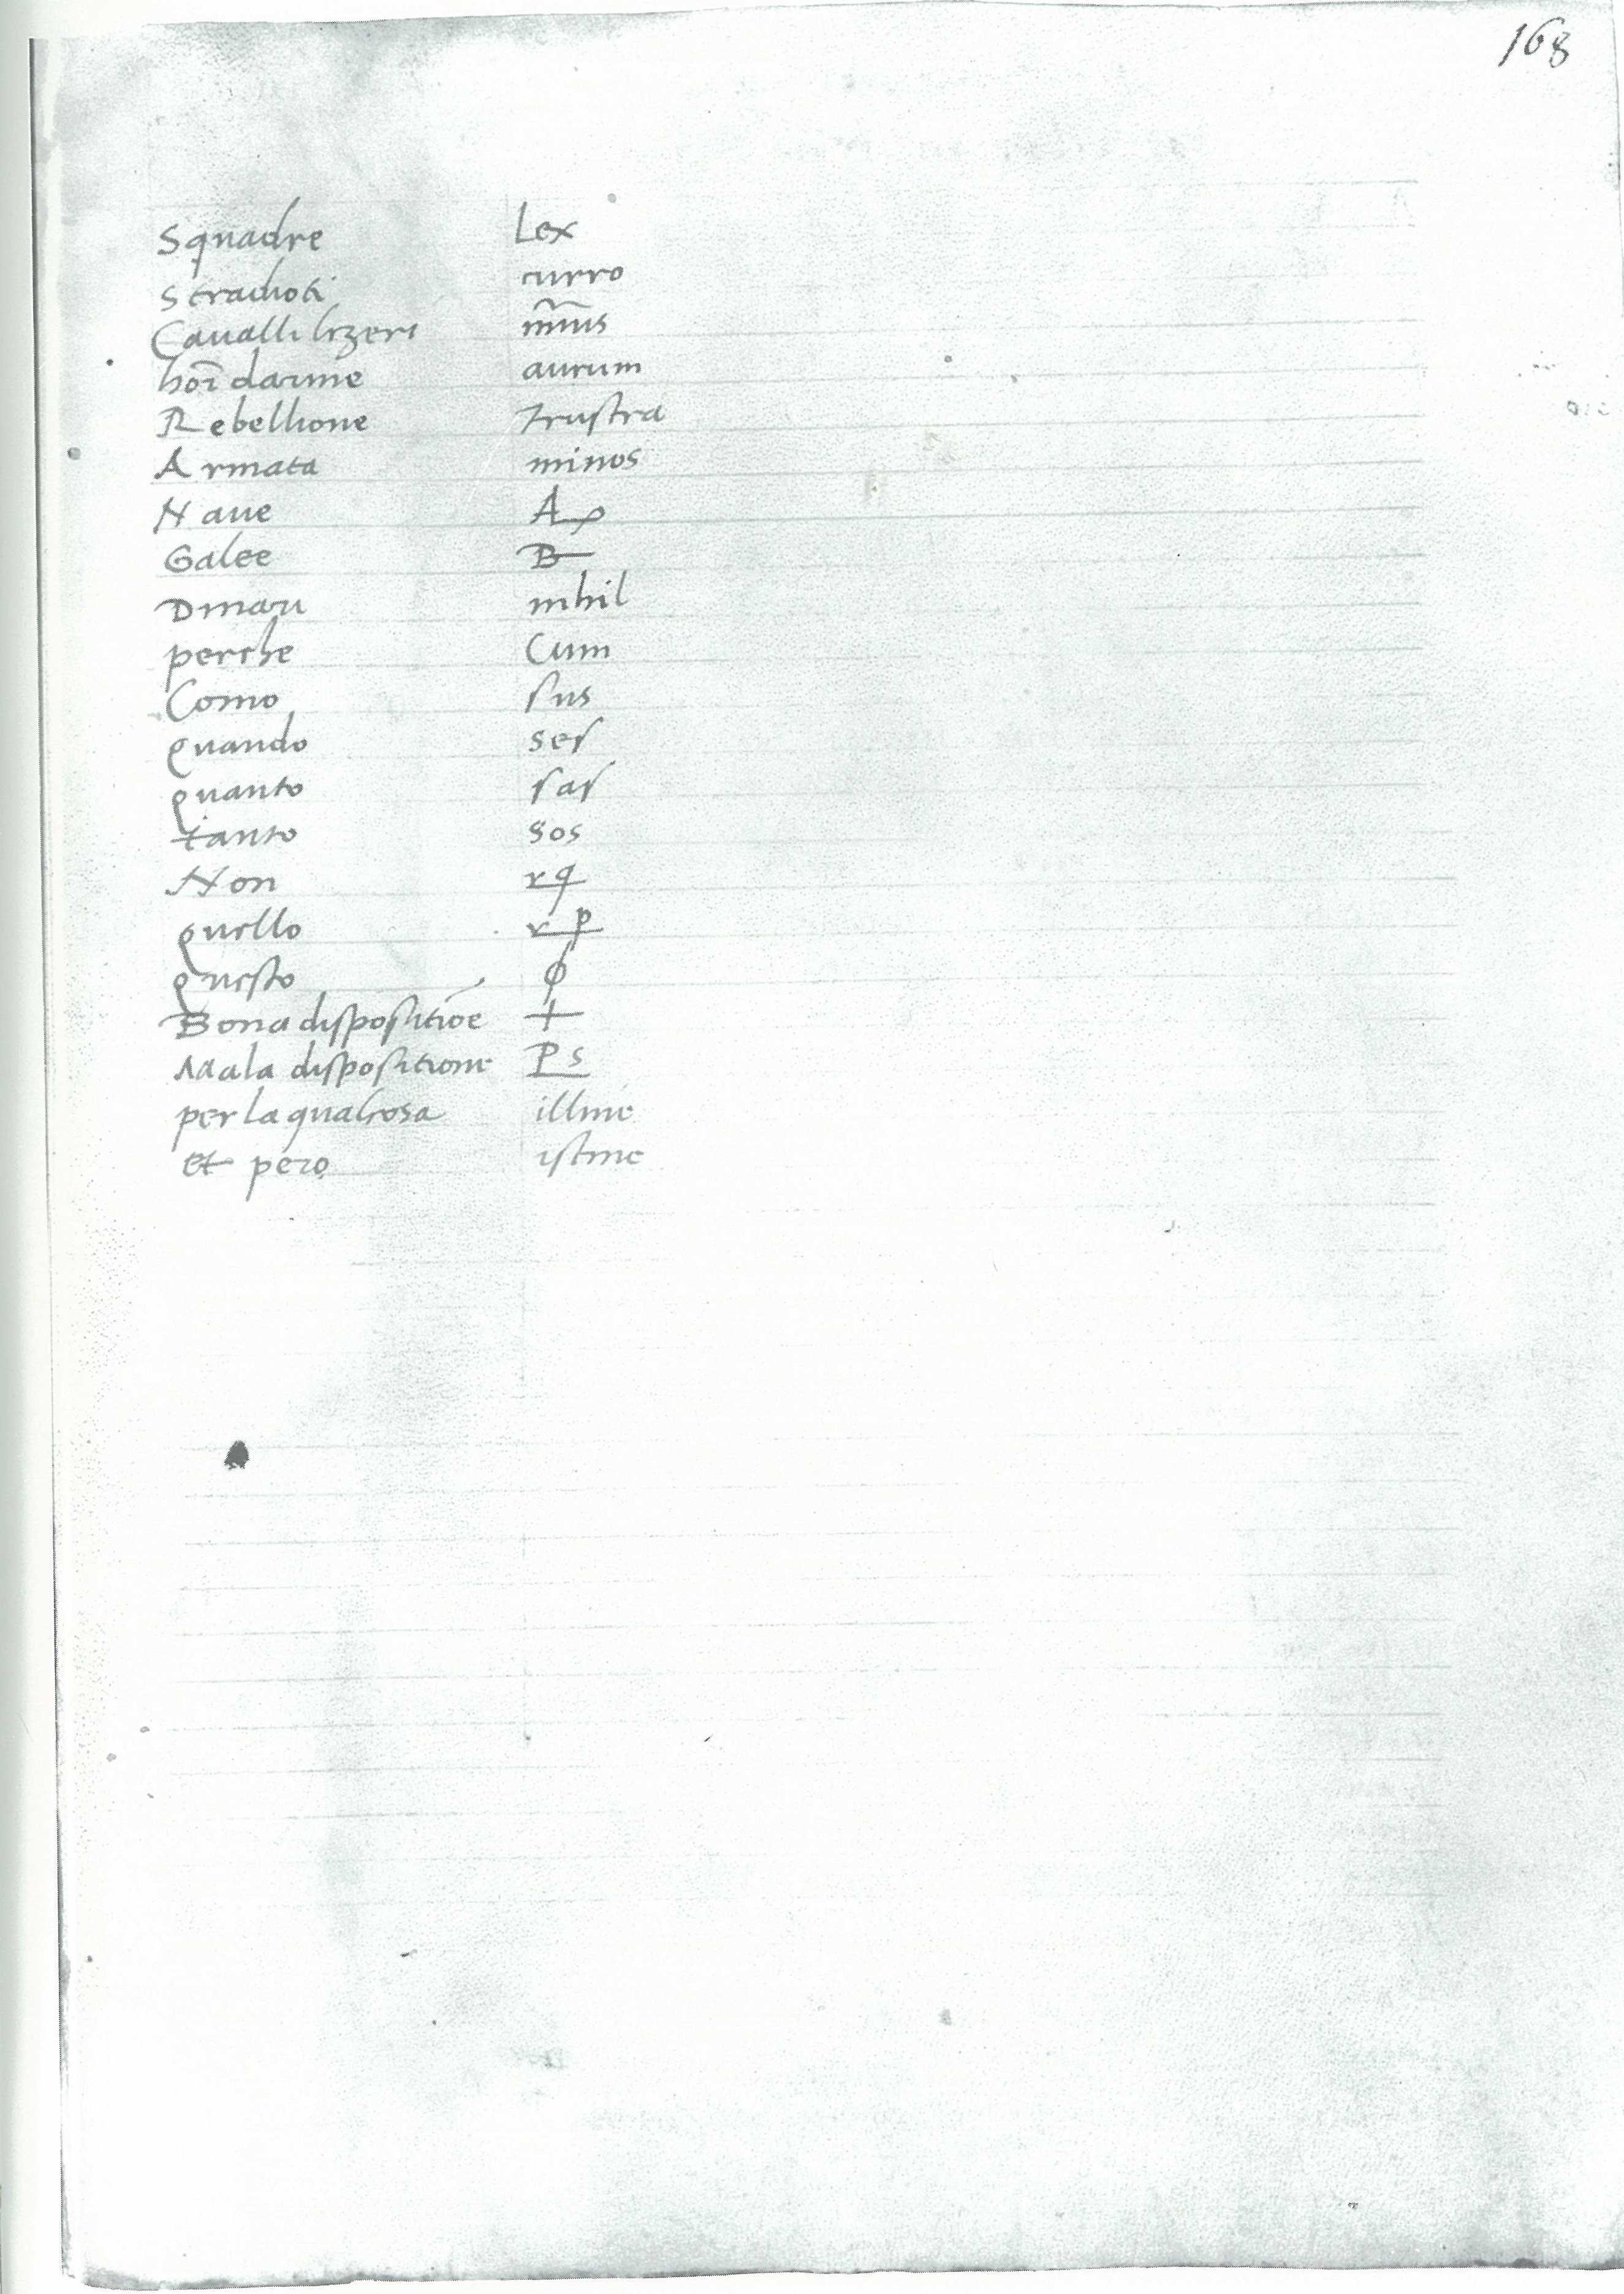 168
Squadre Lex
Stradioti curro
Cavalli lizeri
hoī darme aurum
Rebellione frustra
Armata minos
Naue A
Galee B
Dinari nihil
perche Cum
Como sus
quando ses
quanto sas
tanto sos
Non rq
quello rp
questo ϕ
Bona dispositiōe +
Mala dispositione Ps
per la qualcosa illinc
et pero istinc